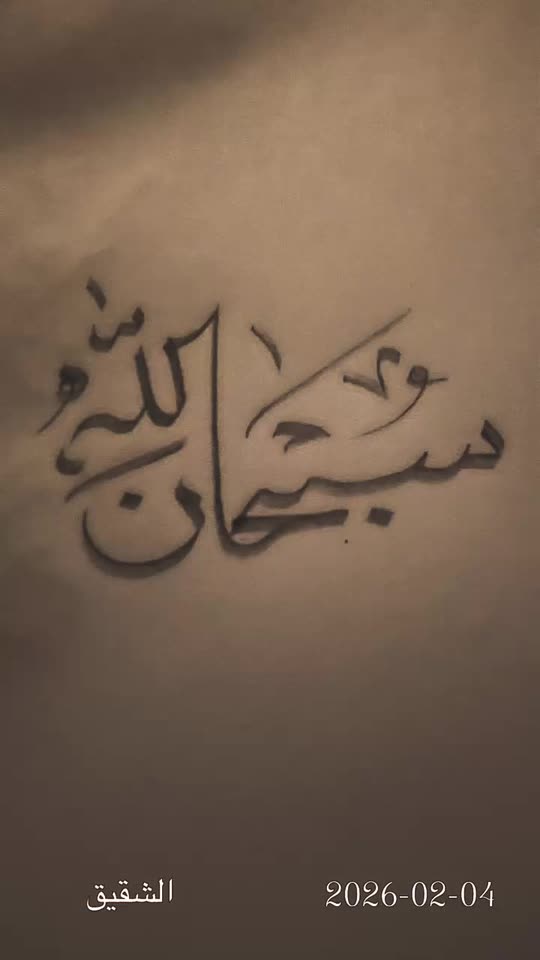 سبحان الله
الشقيق 2026-02-04